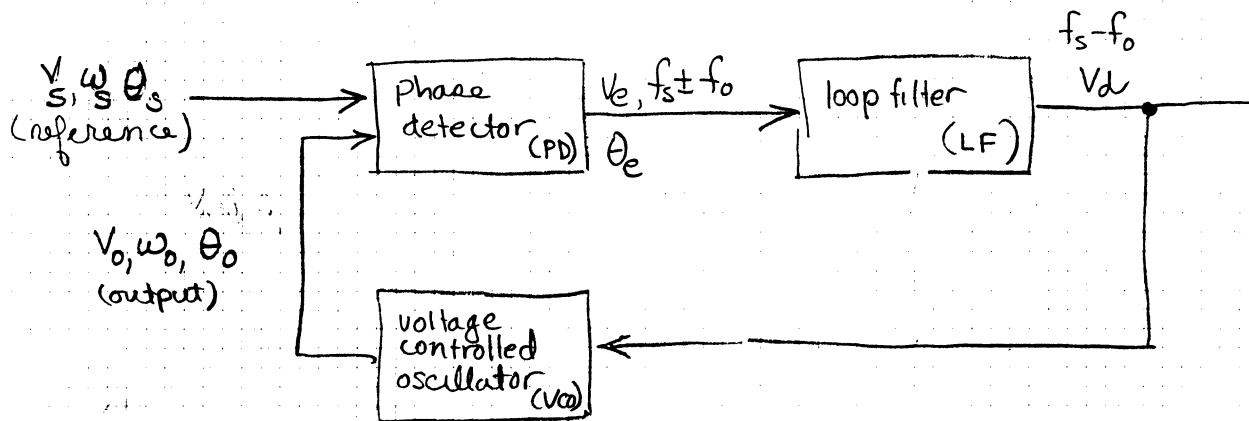 Vs, ωs θs
(reference)
phase
detector
(PD)
Ve, fs ± fo
θe
loop filter
(LF)
fs-fo
Vd
Vo, ωo, θo
(output)
voltage
controlled
oscillator
(VCO)